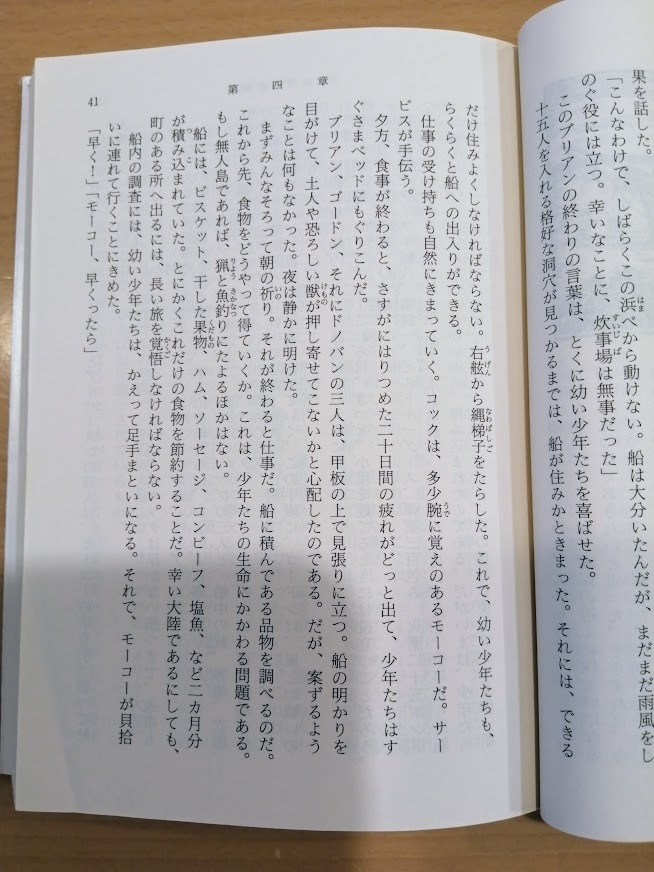 果を話した。
「こんなわけで、しばらくこの浜べから動けない。船は大分いたんだが、まだまだ雨風をし
のぐ役には立つ。幸いなことに、炊事場は無事だった」
このブリアンの終わりの言葉は、とくに幼い少年たちを喜ばせた。
十五人を入れる格好な洞穴が見つかるまでは、船が住みかときまった。それには、できる
第四章
41
だけ住みよくしなければならない。右舷から縄梯子をたらした。これで、幼い少年たちも、
らくらくと船への出入りができる。
仕事の受け持ちも自然にきまっていく。コックは、多少腕に覚えのあるモーコーだ。サー
ビスが手伝う。
夕方、食事が終わると、さすがにはりつめた二十日間の疲れがどっと出て、少年たちはす
ぐさまベッドにもぐりこんだ。
ブリアン、ゴードン、それにドノバンの三人は、甲板の上で見張りに立つ。船の明かりを
目がけて、土人や恐ろしい獣が押し寄せてこないかと心配したのである。だが、案ずるよう
なことは何もなかった。夜は静かに明けた。
まずみんなそろって朝の祈り。それが終わると仕事だ。船に積んである品物を調べるのだ。
これから先、食物をどうやって得ていくか。これは、少年たちの生命にかかわる問題である。
もし無人島であれば、猟と魚釣りにたよるほかはない。
船には、ビスケット、干した果物、ハム、ソーセージ、コンビーフ、塩魚、など二カ月分
が積み込まれていた。とにかくこれだけの食物を節約することだ。幸い大陸であるにしても、
町のある所へ出るには、長い旅を覚悟しなければならない。
船内の調査には、幼い少年たちは、かえって足手まといになる。それで、モーコーが貝拾
いに連れて行くことにきめた。
「早く！」「モーコー、早くったら」